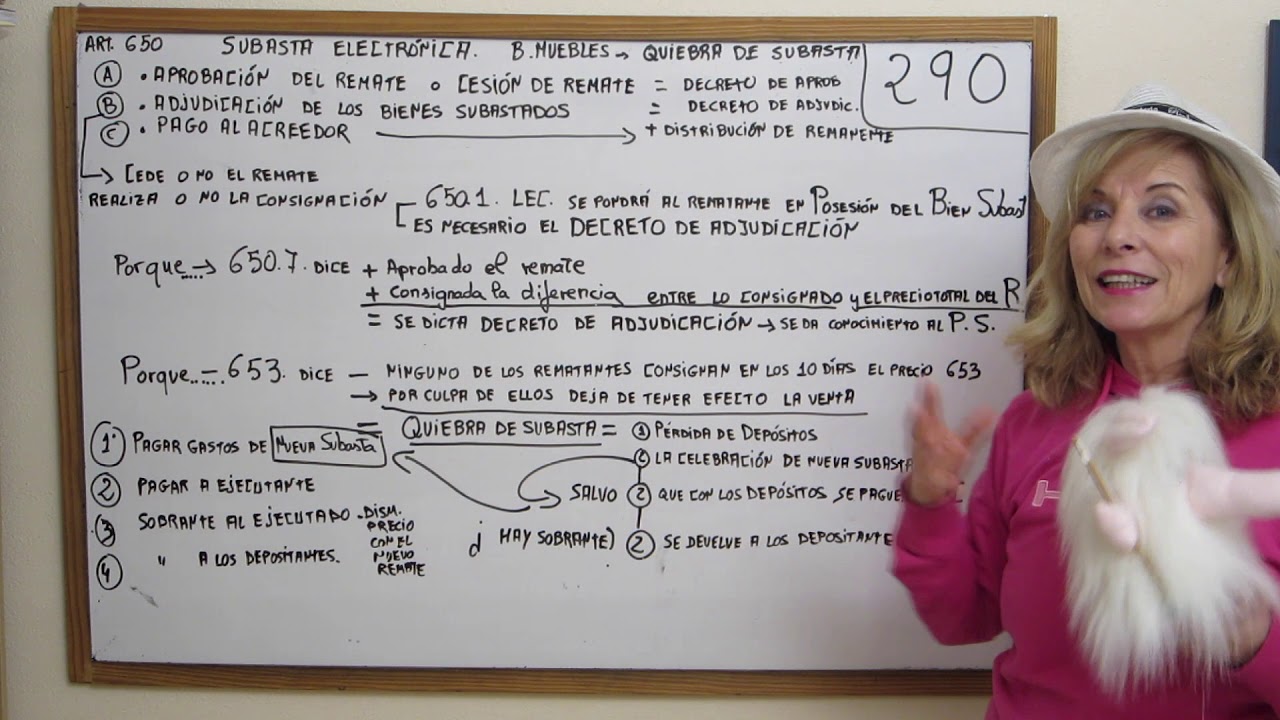 ART. 650 SUBASTA ELECTRÓNICA. B. MUEBLES → QUIEBRA DE SUBASTA
290
Ⓐ • APROBACIÓN DEL REMATE O CESIÓN DE REMATE = DECRETO DE APROB
Ⓑ • ADJUDICACIÓN DE LOS BIENES SUBASTADOS = DECRETO DE ADJUDIC.
Ⓒ • PAGO AL ACREEDOR → + DISTRIBUCIÓN DE REMANENTE
→ CEDE O NO EL REMATE
REALIZA O NO LA CONSIGNACIÓN 650.1. LEC. SE PONDRÁ AL REMATANTE EN POSESIÓN DEL BIEN SUBAST
ES NECESARIO EL DECRETO DE ADJUDICACIÓN
Porque....→ 650.7. DICE + Aprobado el remate
+ Consignada la diferencia ENTRE LO CONSIGNADO Y EL PRECIO TOTAL DEL R
= SE DICTA DECRETO DE ADJUDICACIÓN → SE DA CONOCIMIENTO AL P.S.
Porque..... 653. DICE — NINGUNO DE LOS REMATANTES CONSIGNAN EN LOS 10 DÍAS EL PRECIO 653
→ POR CULPA DE ELLOS DEJA DE TENER EFECTO LA VENTA
= QUIEBRA DE SUBASTA = ① PÉRDIDA DE DEPÓSITOS
1º PAGAR GASTOS DE NUEVA SUBASTA ② LA CELEBRACIÓN DE NUEVA SUBASTA
② PAGAR A EJECUTANTE SALVO ② QUE CON LOS DEPÓSITOS SE PAGUE
③ SOBRANTE AL EJECUTADO - DISM. PRECIO CON EL NUEVO REMATE
HAY SOBRANTE) ② SE DEVELVE A LOS DEPOSITANTE
④ " A LOS DEPOSITANTES.